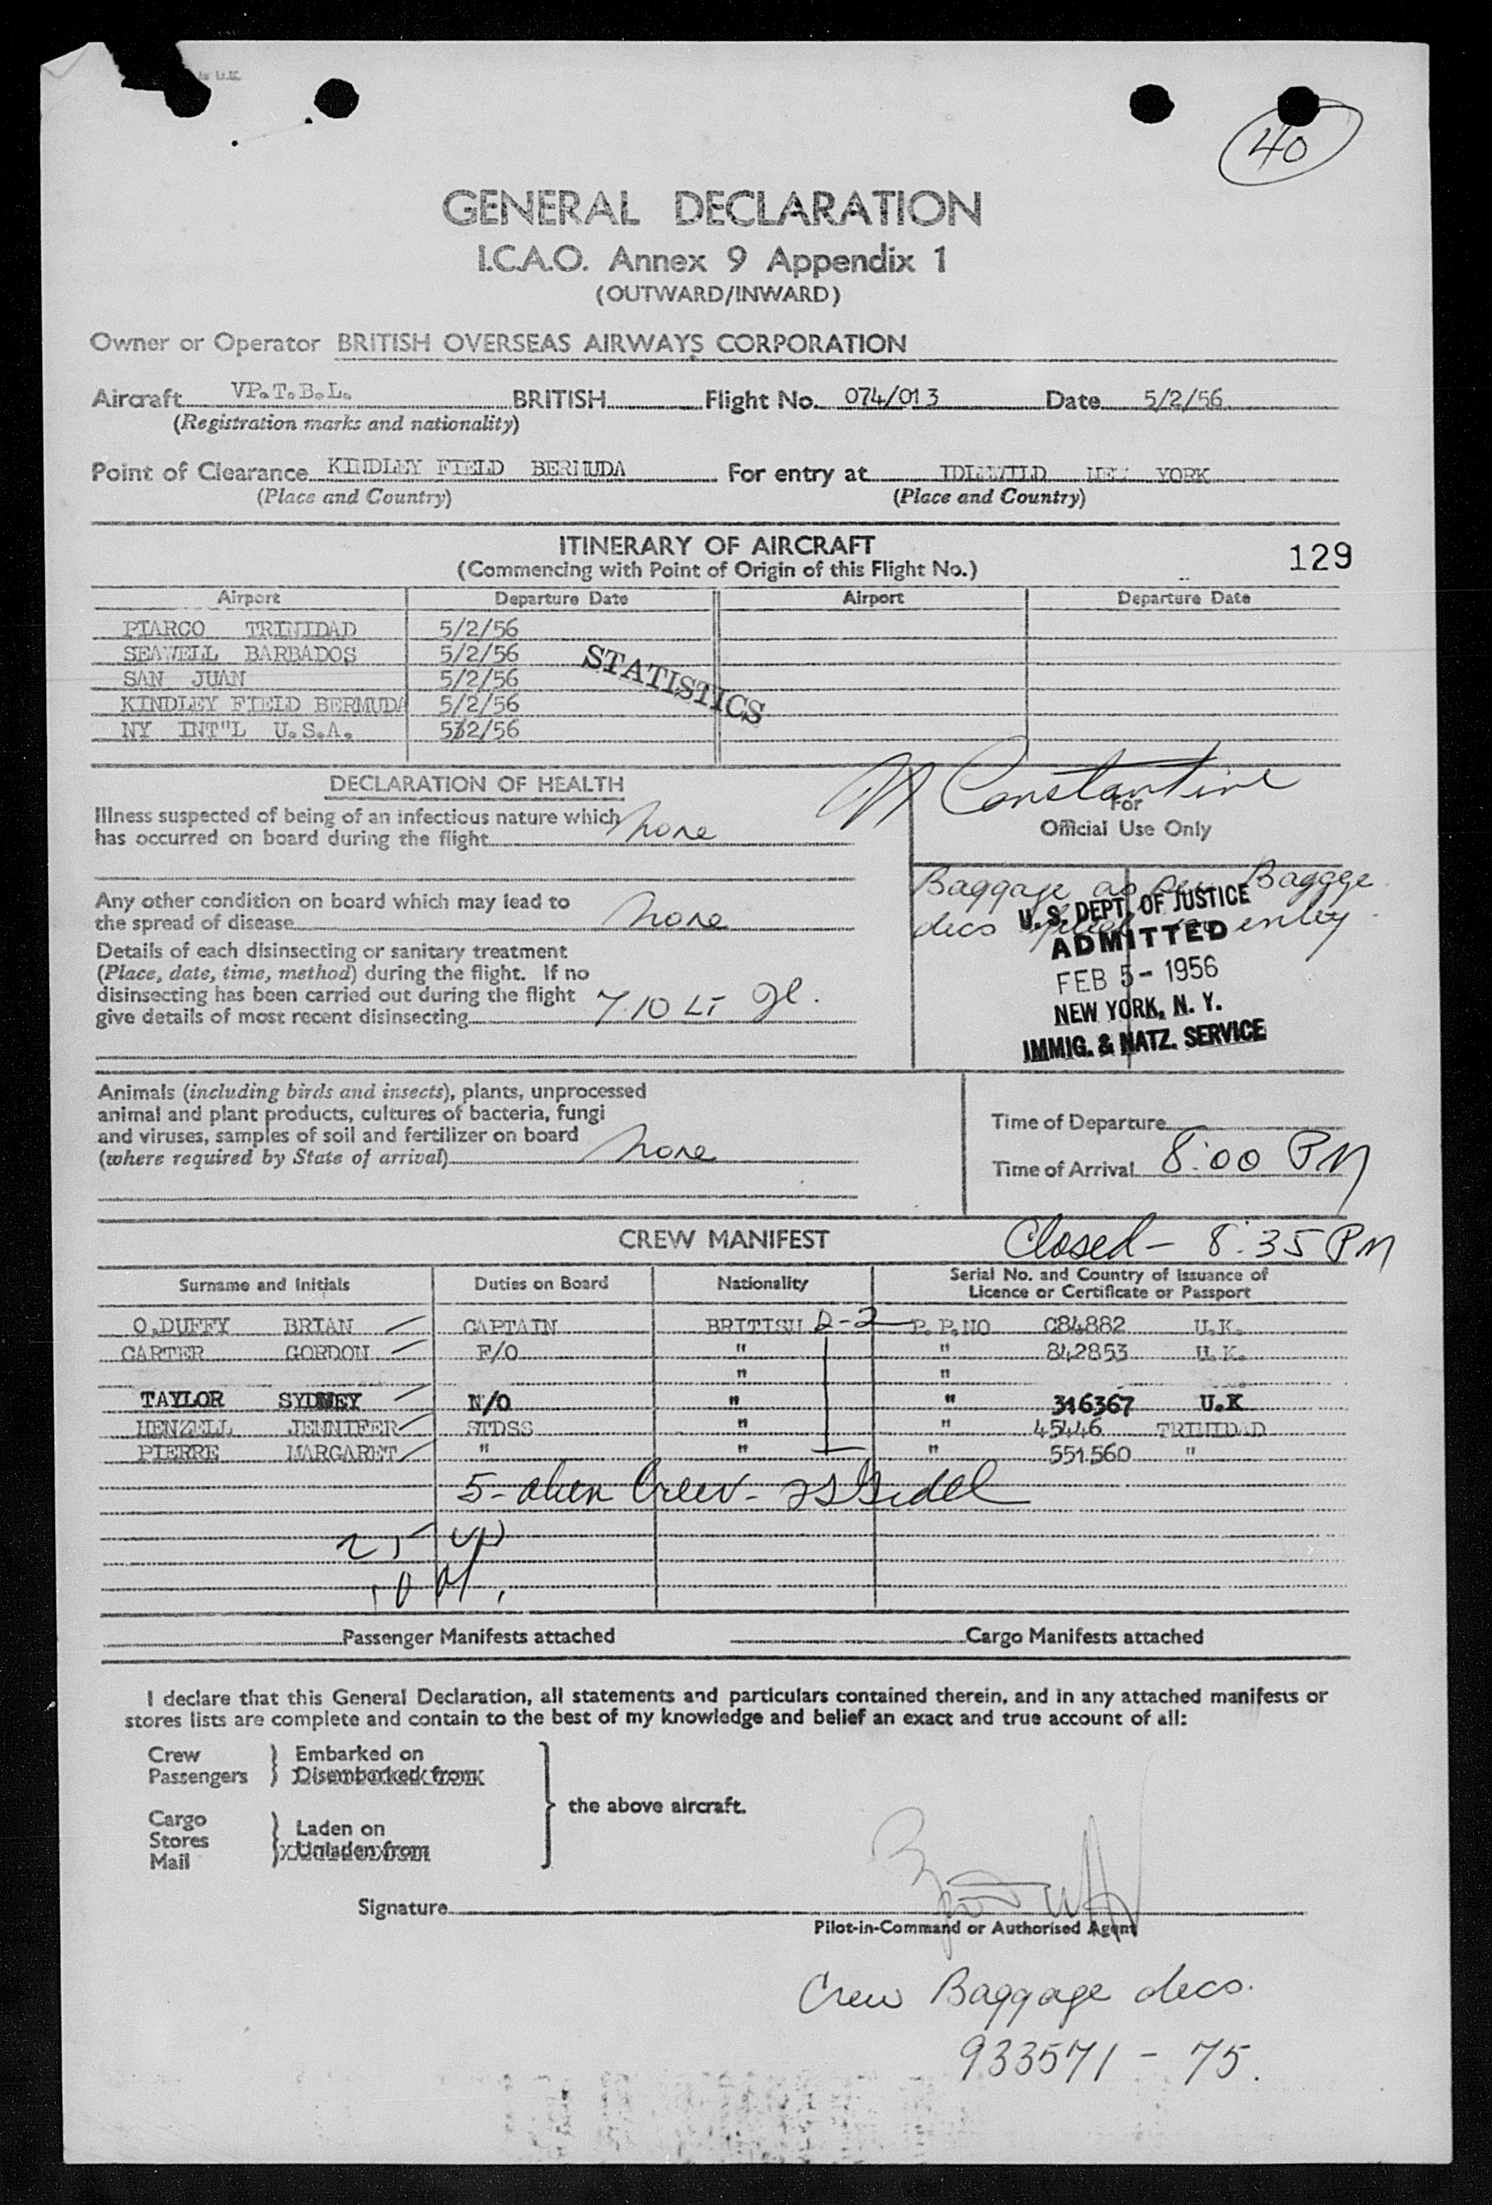 40
GENERAL DECLARATION
I.C.A.O. Annex 9 Appendix 1
(OUTWARD/INWARD)
Owner or Operator BRITISH OVERSEAS AIRWAYS CORPORATION
Aircraft VP.T.B.L. BRITISH Flight No. 074/013 Date 5/2/56
(Registration marks and nationality)
Point of Clearance KINDLEY FIELD BERMUDA For entry at IDLEWILD NEW YORK
(Place and Country) (Place and Country)
ITINERARY OF AIRCRAFT
129
(Commencing with Point of Origin of this Flight No.)
Airport Departure Date Airport Departure Date
PIARCO TRINIDAD 5/2/56
SEAWELL BARBADOS 5/2/56
SAN JUAN 5/2/56
KINDLEY FIELD BERMUDA 5/2/56
NY INT"L U.S.A. 5/2/56
STATISTICS
DECLARATION OF HEALTH
Constantine
For
Official Use Only
Illness suspected of being of an infectious nature which
has occurred on board during the flight none
Any other condition on board which may lead to
the spread of disease none
Baggage as per Baggage
decs entry
U. S. DEPT. OF JUSTICE
ADMITTED
FEB 5 - 1956
NEW YORK, N. Y.
IMMIG. & NATZ. SERVICE
Details of each disinsecting or sanitary treatment
(Place, date, time, method) during the flight. If no
disinsecting has been carried out during the flight
give details of most recent disinsecting
Animals (including birds and insects), plants, unprocessed
animal and plant products, cultures of bacteria, fungi
and viruses, samples of soil and fertilizer on board
(where required by State of arrival) none
Time of Departure
Time of Arrival 8:00 PM
CREW MANIFEST
Closed - 8:35 PM
Surname and Initials Duties on Board Nationality Serial No. and Country of Issuance of
Licence or Certificate or Passport
O.DUFFY BRIAN CAPTAIN BRITISH D-2 P.P.NO C84882 U.K.
CARTER GORDON F/O " " 842853 U.K.
" "
TAYLOR SYDNEY N/O " " 316367 U.K
HENZELL JENNIFER STDSS " " 45446 TRINIDAD
PIERRE MARGARET " " " 551560 "
5 - alien Crew -
25 up
Passenger Manifests attached Cargo Manifests attached
I declare that this General Declaration, all statements and particulars contained therein, and in any attached manifests or
stores lists are complete and contain to the best of my knowledge and belief an exact and true account of all:
Crew Embarked on
Passengers Disembarked from
the above aircraft.
Cargo
Stores Laden on
Mail Unladen from
Signature
Pilot-in-Command or Authorised Agent
Crew Baggage decs.
933571 - 75.